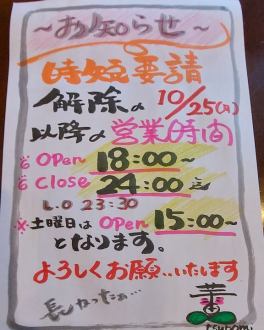 ～お知らせ～
時短要請
解除の 10/25(月)
以降の営業時間
Open 18:00～
Close 24:00迄
L.O 23:30
※土曜日は Open 15:00～
となります。
よろしくお願いいたします
長かったぁ…
蕾
tsubomi